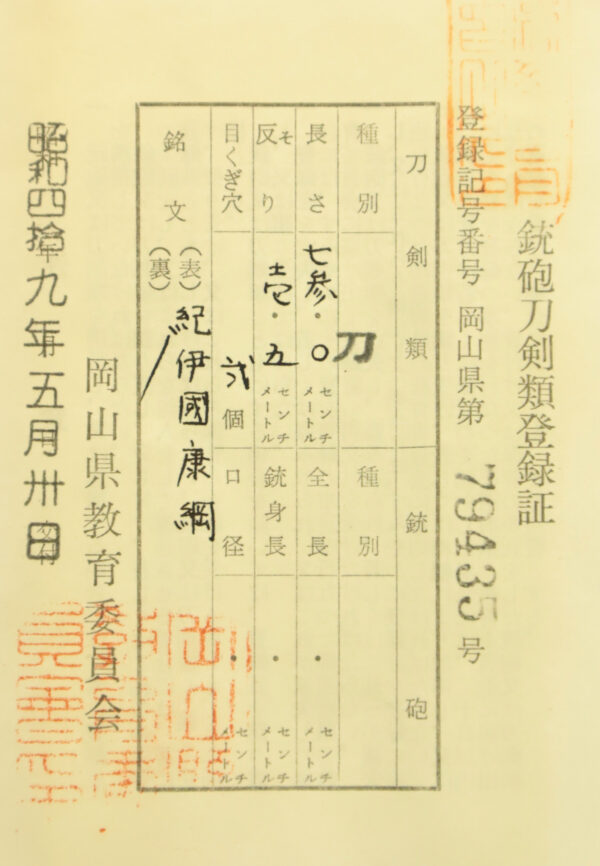 銃砲刀剣類登録証
登録記号番号 岡山県第 79435 号
刀剣類 銃砲
種別 刀 種別
長さ 七参.〇 センチメートル 全長 ・ センチメートル
反り そ 壱.五 センチメートル 銃身長 ・ センチメートル
目くぎ穴 弐 個 口径 ・ センチメートル
銘文 (表) 紀伊國康綱
(裏)
岡山県教育委員会
昭和四拾九年五月卅日